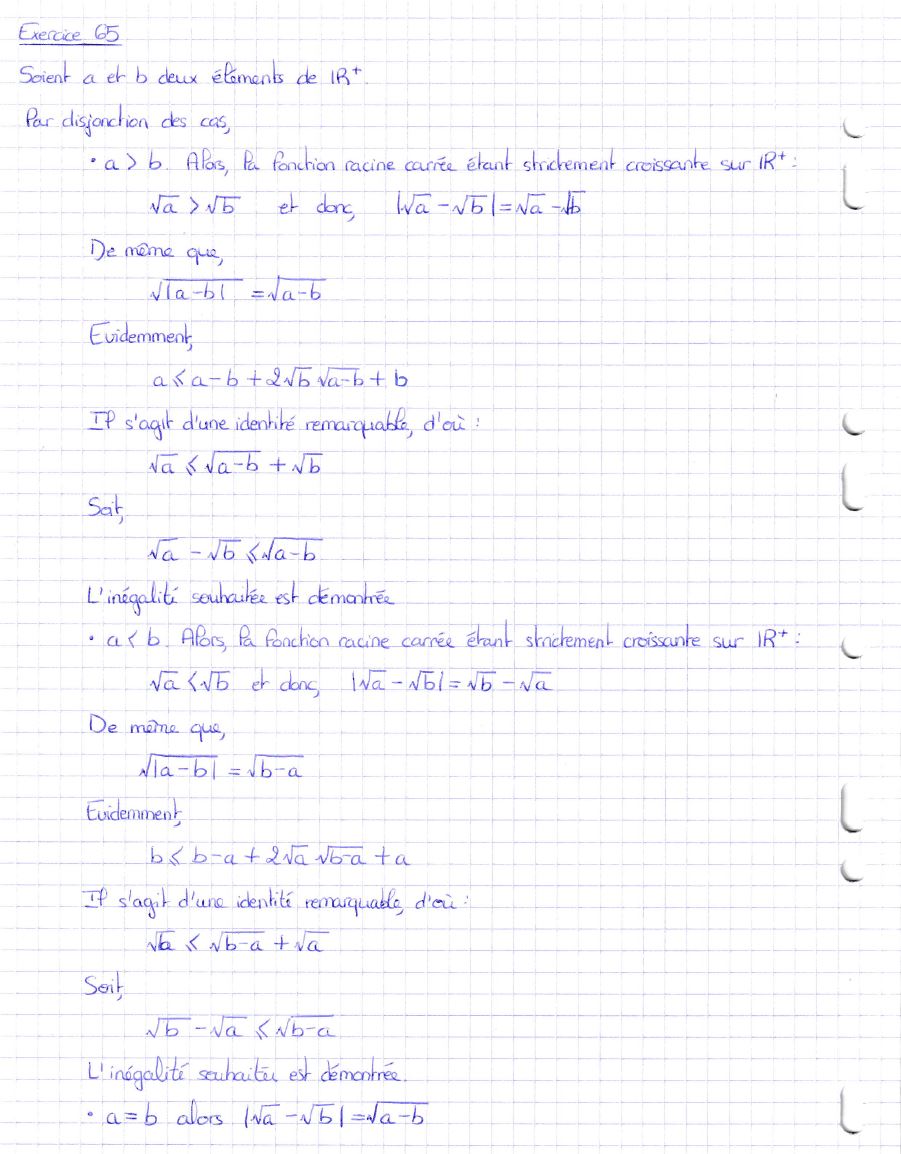 Exercice 65
Soient a et b deux éléments de IR⁺.
Par disjonction des cas,
• a > b. Alors, la fonction racine carrée étant strictement croissante sur IR⁺ :
√a > √b et donc, |√a - √b| = √a - √b
De même que,
√|a-b| = √(a-b)
Evidemment,
a ⩽ a - b + 2√b √(a-b) + b
Il s'agit d'une identité remarquable, d'où :
√a ⩽ √(a-b) + √b
Soit,
√a - √b ⩽ √(a-b)
L'inégalité souhaitée est démontrée
• a < b. Alors, la fonction racine carrée étant strictement croissante sur IR⁺ :
√a < √b et donc, |√a - √b| = √b - √a
De même que,
√|a-b| = √(b-a)
Evidemment,
b ⩽ b - a + 2√a √(b-a) + a
Il s'agit d'une identité remarquable, d'où :
√b ⩽ √(b-a) + √a
Soit,
√b - √a ⩽ √(b-a)
L'inégalité souhaitée est démontrée.
• a = b alors |√a - √b| = √(a-b)